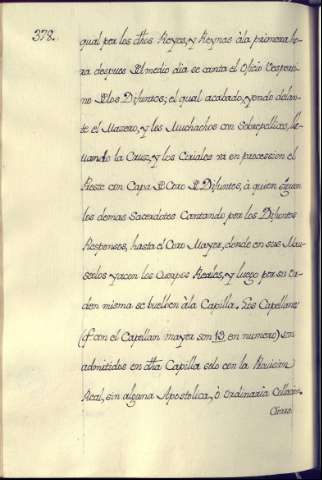 378.
qual por los dhos Reyes, y Reynas à la primera ho-
ra despues del medio dia se canta el Oficio Vesperti-
no de los Difuntos; el qual acabado, yendo delan-
te el Mazero, y los Muchachos con Sobrepellices, lle-
uando la Cruz, y los Ceriales va en procession el
Preste con Capa de Coro de Difuntos, à quien siguen
los demas Sacerdotes Cantando por los Difuntos
Responsos, hasta el Coro Mayor, donde en sus Mau-
seolos yacen los Cuerpos Reales, y luego por su or-
den misma se buelben à la Capilla. Los Capellanes
(q con el Capellan mayor son 13 en numero) son
admitidos en dha Capilla solo con la Provicion
Real, sin alguna Apostolica, ò Ordinaria Collacion.